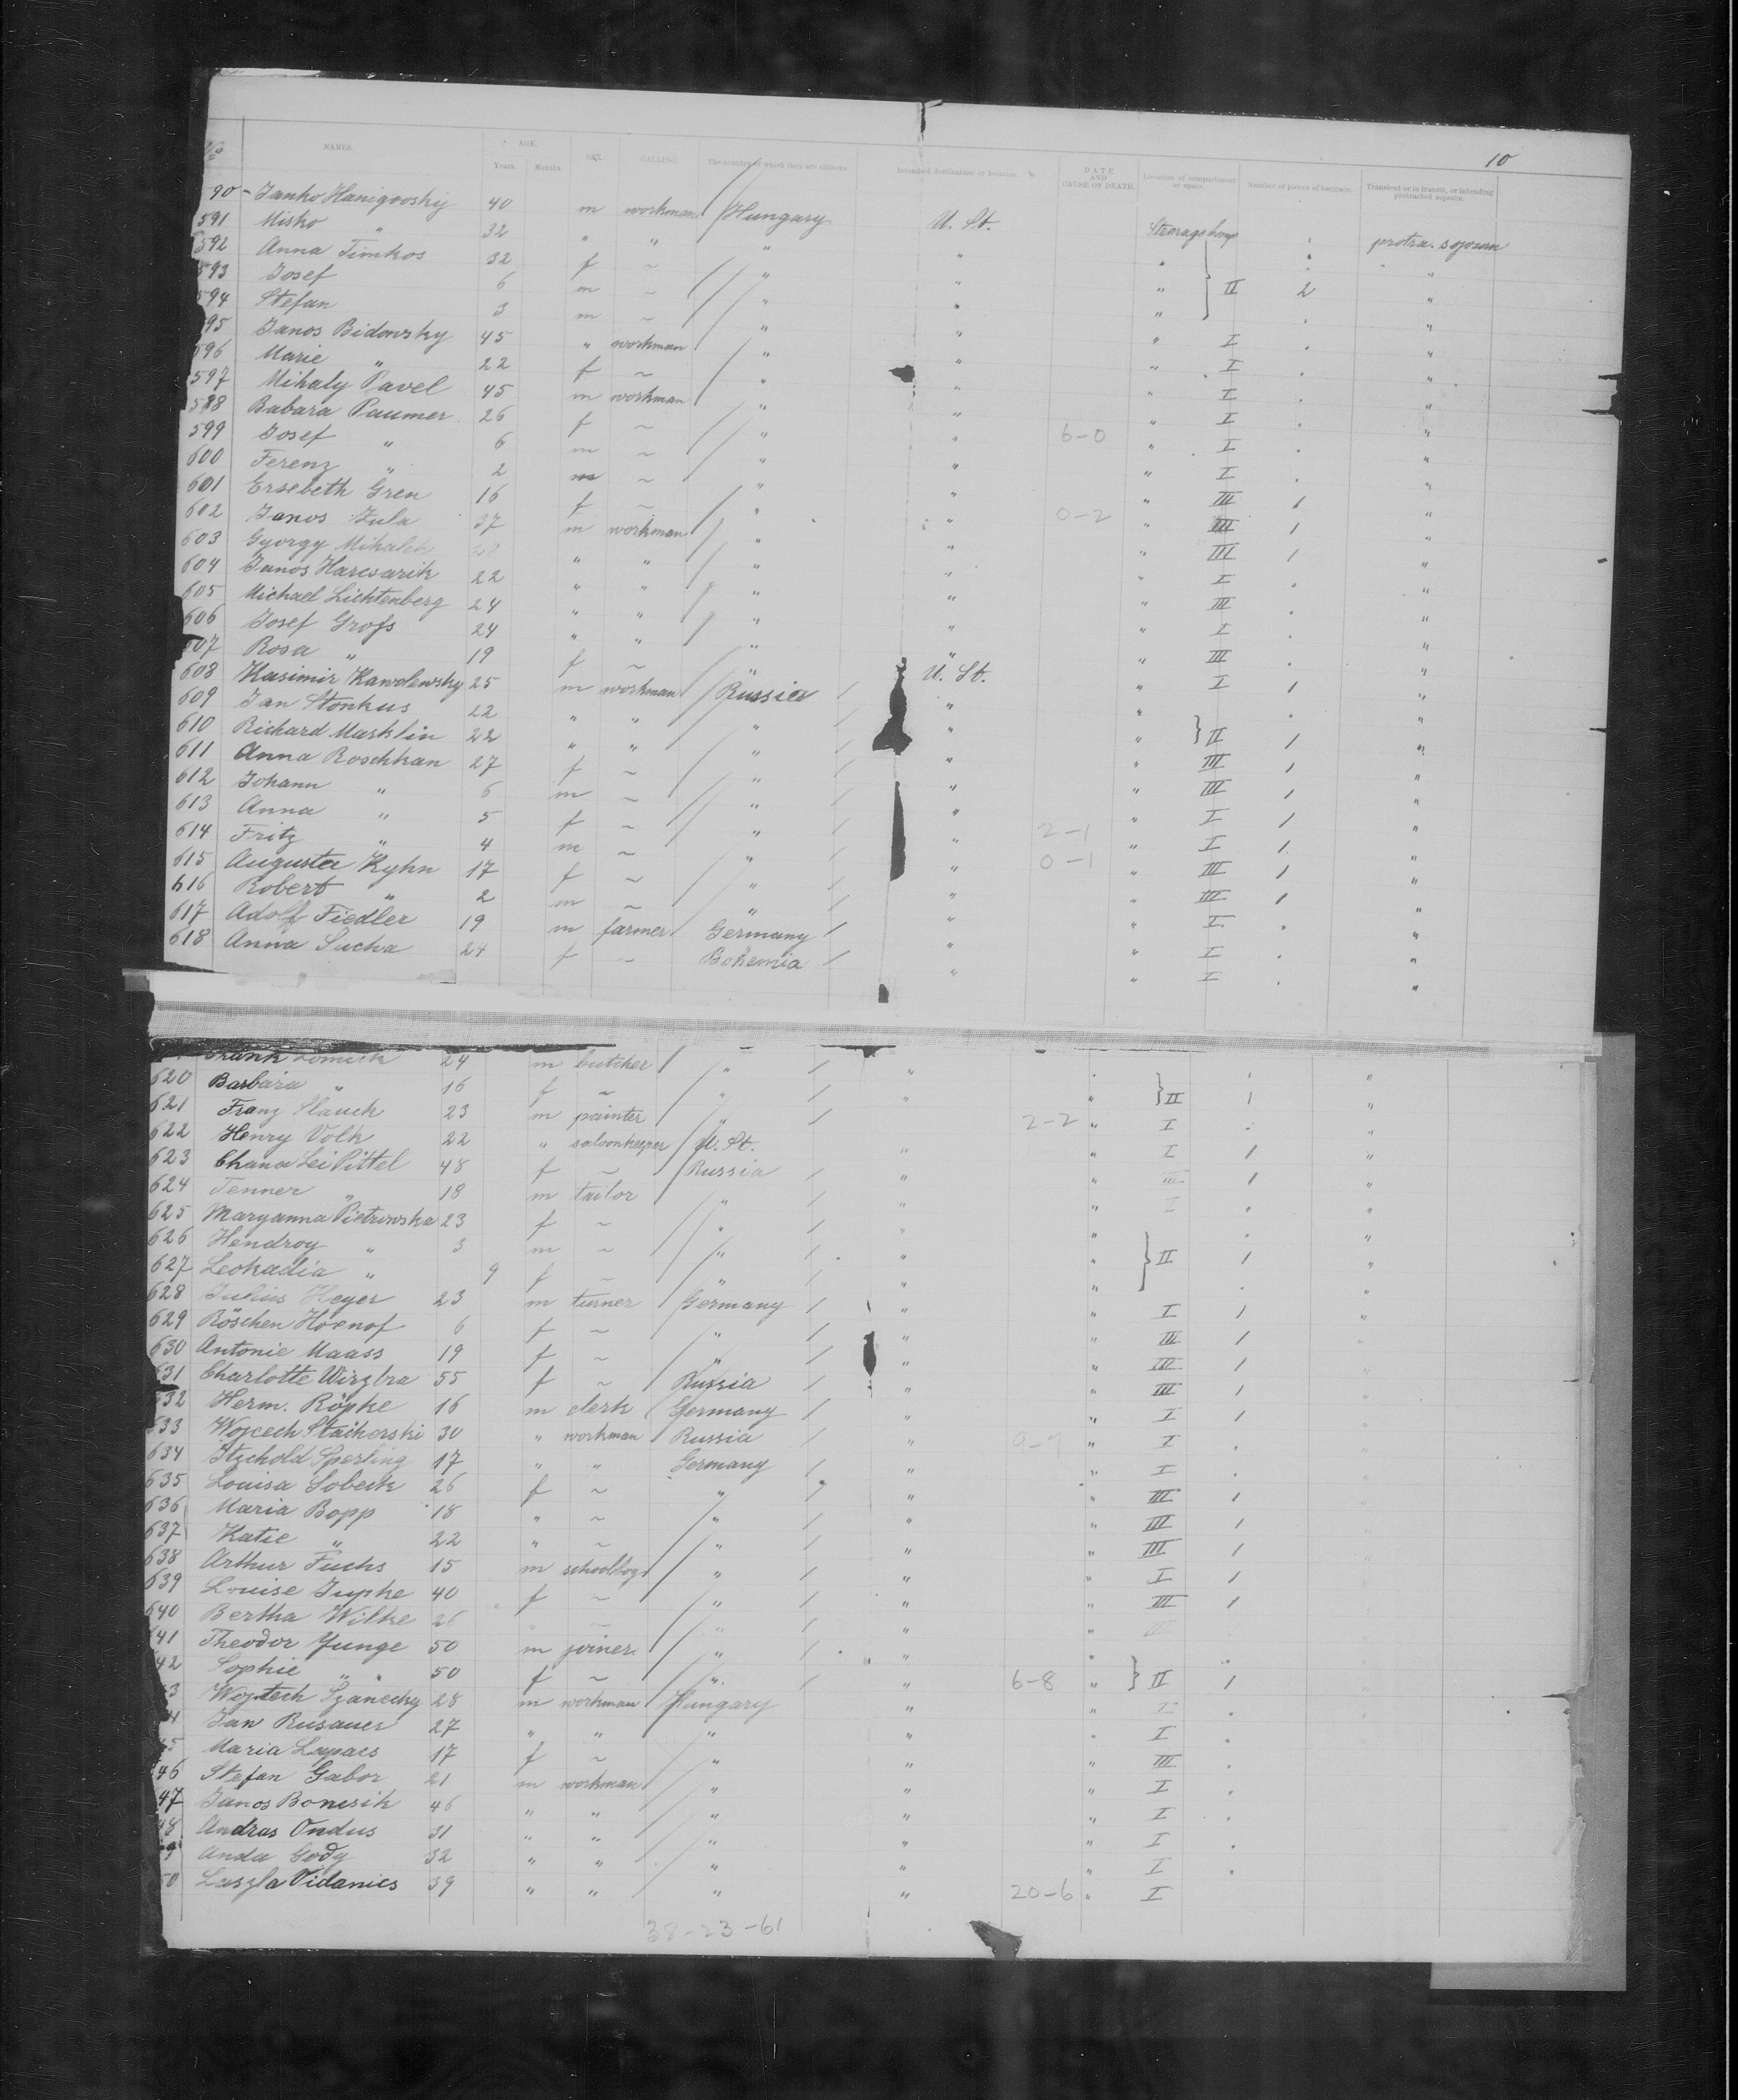 10
No NAMES. AGE. Years. Months. SEX. CALLING. The country of which they are citizens. Intended destination or location. DATE AND CAUSE OF DEATH. Location of compartment or space. Number of pieces of baggage. Transient or in transit, or intending protracted sojourn.
90 - Janko Hanigovskij 40 m workman Hungary U. St. Steerage protra. sojourn
591 Misko " 32 " " " " " "
592 Anna Timkos 32 f ~ " " " "
593 Josef 6 m ~ " " " II 2 "
594 Stefan 3 m ~ " " " "
95 Janos Bidonsky 45 " workman " " " I "
596 Marie " 22 f ~ " " " I "
597 Mihaly Pavel 45 m workman " " " I "
598 Babara Paumer 26 f ~ " " " I "
599 Josef " 6 m ~ " " 6-0 " I "
600 Ferenz " 2 m ~ " " " I "
601 Ersebeth Gren 16 f ~ " " " III 1 "
602 Janos Zula 37 m workman " " 0-2 " III 1 "
603 Gyorgy Mihalik 28 " " " " " III 1 "
604 Janos Harcsarik 22 " " " " " I "
605 Michael Lichtenberg 24 " " " " " III "
606 Josef Grofs 24 " " " " " I "
607 Rosa " 19 f ~ " " " III "
608 Kasimir Kawolewsky 25 m workman Russia U. St. " I 1 "
609 Jan Stonkus 22 " " " " " "
610 Richard Marklin 22 " " " " " II 1 "
611 Anna Roschkan 27 f ~ " " " III 1 "
612 Johann " 6 m ~ " " " III 1 "
613 Anna " 5 f ~ " " " I 1 "
614 Fritz " 4 m ~ " " 2-1 " I 1 "
615 Auguste Kyhn 17 f ~ " " 0-1 " III 1 "
616 Robert " 2 m ~ " " " III 1 "
617 Adolf Fiedler 19 m farmer Germany " " I "
618 Anna Sucha 24 f ~ Bohemia " " I "
24 m butcher " " " 1 "
620 Barbara " 16 f ~ " " " II 1 "
621 Franz Slauck 23 m painter " 2-2 " I "
622 Henry Volk 22 " saloonkeeper U. St. " " I 1 "
623 Chana Lei Pittel 48 f ~ Russia " " III 1 "
624 Tenner " 18 m tailor " " " I "
625 Maryanna Pietrowska 23 f ~ " " " "
626 Hendroy " 3 m ~ " " " II 1 "
627 Leokadia " 9 f ~ " " " "
628 Julius Heyer 23 m turner Germany " " I 1 "
629 Röschen Hoenof 6 f ~ " " " III 1 "
630 Antonie Maass 19 f ~ " " " III 1 "
631 Charlotte Wirzbra 55 f ~ Russia " " III 1 "
632 Herm. Röpke 16 m clerk Germany " " I 1 "
633 Wojcech Stacherski 30 " workman Russia " " I "
634 Itzchold Sperling 17 " " Germany " " I "
635 Louisa Sobeck 26 f ~ " " " III 1
636 Maria Bopp 18 " ~ " " " III 1
637 Katie " 22 " ~ " " " III 1
638 Arthur Fuchs 15 m schoolboy " " " I 1
639 Louise Jupke 40 f ~ " " " III 1
640 Bertha Wilke 26 " "
641 Theodor Junge 50 m joiner " " "
42 Sophie " 50 f ~ " " 6-8 " II 1
3 Wojtech Szanecky 28 m workman Hungary " " I
4 Jan Rusauer 27 " " " " " I
5 Maria Lapacs 17 f ~ " " " III
46 Stefan Gabor 21 m workman " " " I
47 Janos Bonesik 46 " " " " " I
48 Andras Ondus 31 " " " " " I
9 Anda Gody 32 " " " " " I
50 Laszla Vidanics 39 " " " " 20-6 " I
38-23-61